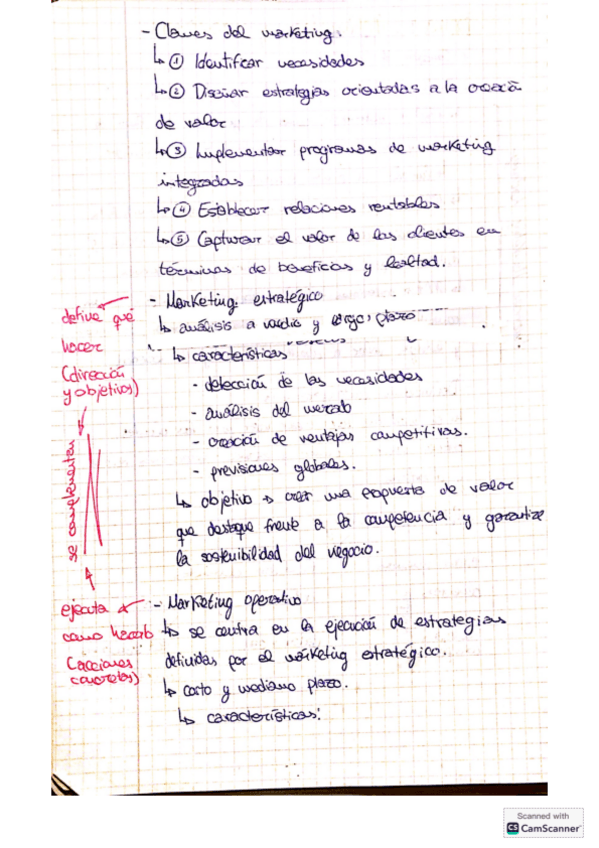 - Claves del marketing:
↳ ① Identificar necesidades
↳ ② Diseñar estrategias orientadas a la creació
de valor
↳ ③ Implementar programas de marketing
integradas
↳ ④ Establecer relaciones rentables
↳ ⑤ Capturar el valor de los clientes en
términos de beneficios y lealtad.
- Marketing estratégico
↳ análisis a medio y largo plazo
↳ características
- detección de las necesidades
- análisis del mercado
- creación de ventajas competitivas.
- previsiones globales.
↳ objetivo → crear una propuesta de valor
que destaque frente a la competencia y garantize
la sostenibilidad del negocio.
- Marketing operativo
↳ se centra en la ejecución de estrategias
definidas por el márketing estratégico.
↳ corto y mediano plazo.
↳ características:
define qué
hacer
(dirección
y objetivos)
se complementan
ejecuta
como hacerlo
(acciones
concretas)
Scanned with
CS CamScanner